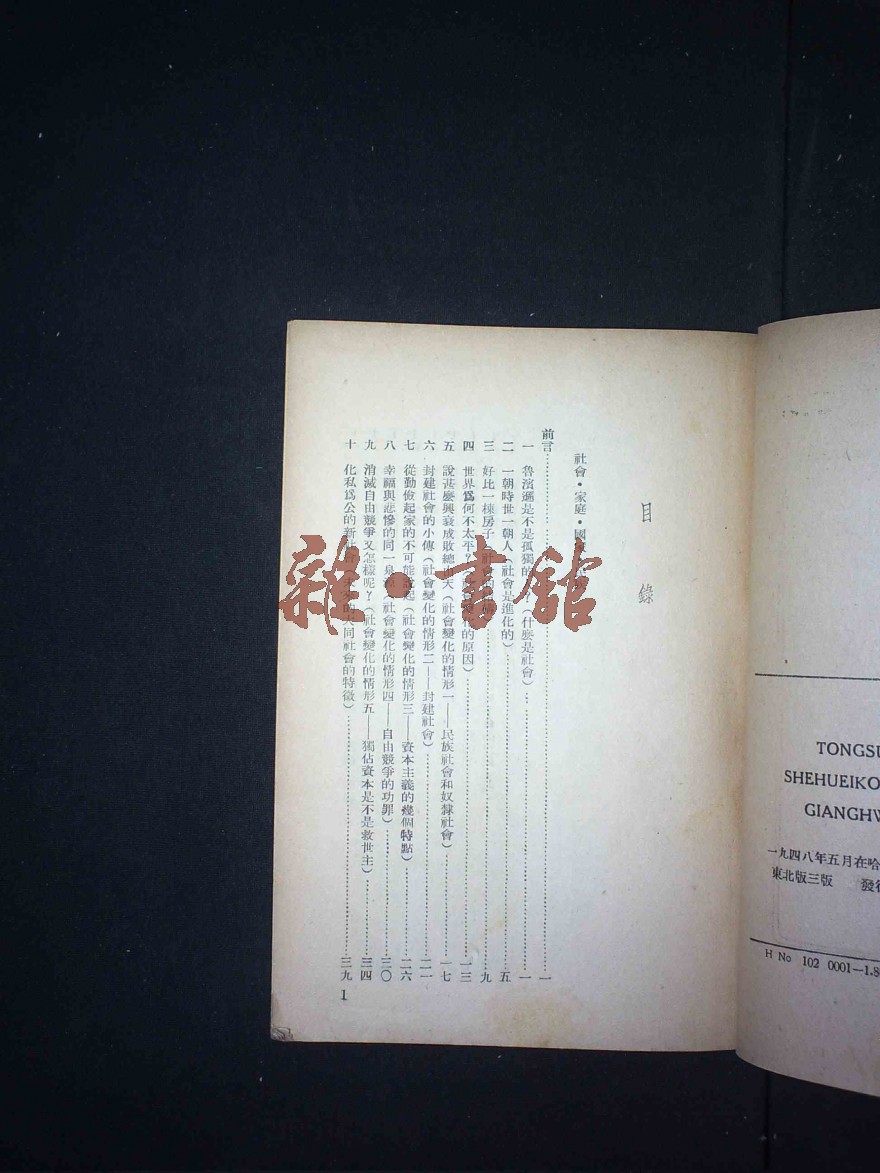 目錄
社會·家庭·國
前言……一
一 魯濱遜是不是孤獨的?(什麼是社會)……一
二 一朝時世一朝人(社會是進化的)……五
三 好比一棟房子 社會的……九
四 世界爲何不太平?的原因)……一三
五 說甚麼興衰成敗總天(社會變化的情形一——民族社會和奴隸社會)……一七
六 封建社會的小傳(社會變化的情形二——封建社會)……二一
七 從勤儉起家的不可能說起(社會變化的情形三——資本主義的幾個特點)……二六
八 幸福與悲慘的同一泉源(社會變化的情形四——自由競爭的功罪)……三〇
九 消滅自由競爭又怎樣呢?(社會變化的情形五——獨佔資本是不是救世主)……三四
十 化私爲公的新社會 大同社會的特徵)……三九
1
TONGSU
SHEHUEIKO
GIANGHW
一九四八年五月在哈
東北版三版 發
H No 102 0001—1.8
雜·書館